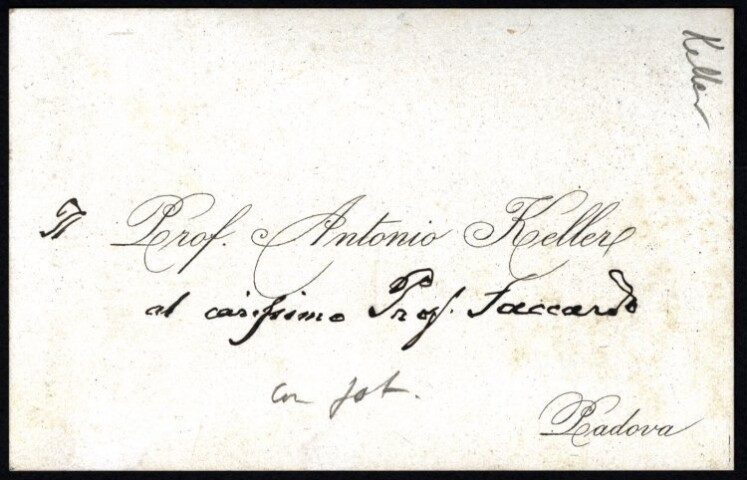 Keller
Il Prof. Antonio Keller
al carissimo Prof. Saccardo
con fot.
Padova